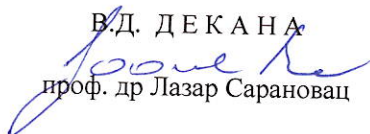 В.Д. Д Е К А Н А
проф. др Лазар Сарановац